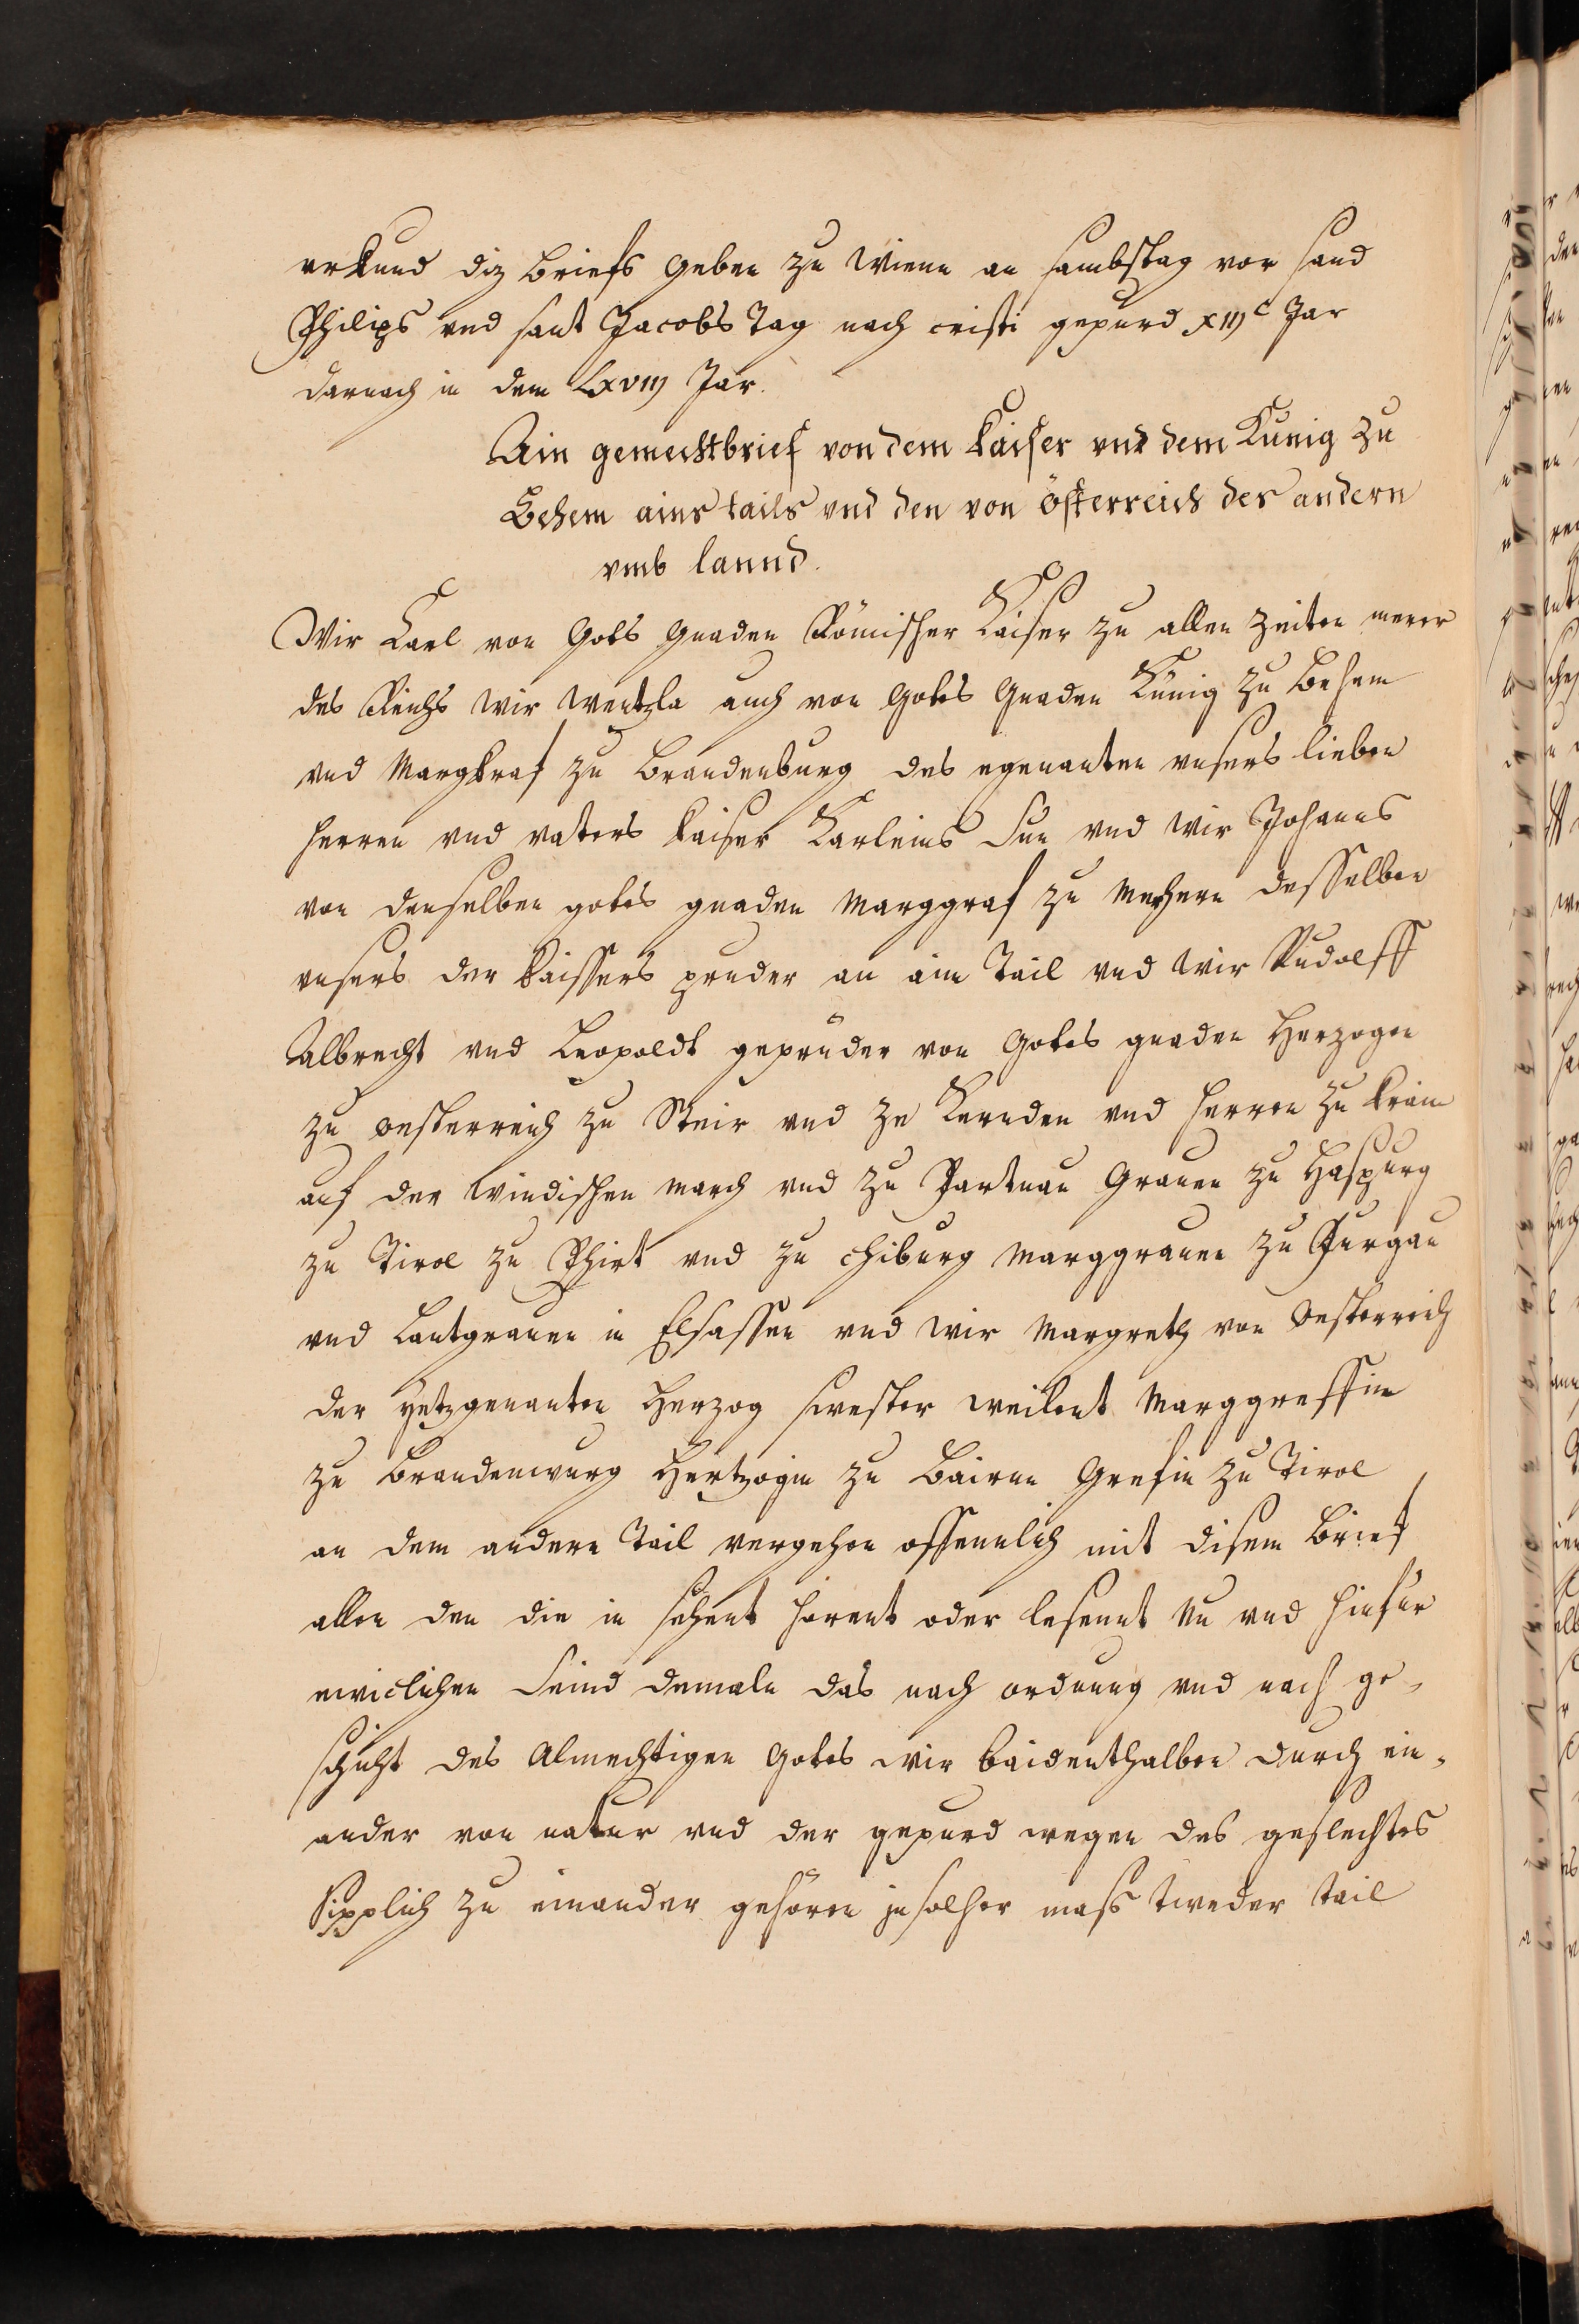 urkund diz briefs geben zu Wienn an sambstag vor sand
Philips und sant Jacobs Tag nach cristi gepurd xiijc Jar
darnach in dem Lxviij Jar.
Ain gemechtbrief von dem kaiser vnd dem Künig zu
Behem ains tails vnd den von österreich des andern
vmb lannd.
Wir Karl von Gots Gnaden Römischer Kaiser zu allen Zeiten merer
des Reichs Wir Wentzla auch von Gotes Gnaden Künig zu Behem
vnd Margkraf zu Brandenburg des egenanten vnsers lieben
herren vnd vaters kaiser Karleins Sun vnd wir Johanns
von denselben gotes gnaden Marggraf zu Merhern desselben
vnsers der kaissers pruder an aim Tail vnd Wir Rudolff
Albrecht vnd Leopoldt geprüder von Gotes gnaden Herzogen
zu oesterreich zu Steir vnd ze Kernden vnd herren zu krain
auf der Windischen march vnd zu Partnau Grauen zu Haspurg
zu Tirol zu Phirt vnd zu chiburg Marggrauen zu Purgau
vnd Lantgrauen in Elsassen vnd wir Margreth von Oesterreich
der yetzgenanten Herzog swester weilent Marggreffin
zu Brandenwurg Hertzogin zu Bairen Grefin zu Tirol
an dem andern Tail vergehen offennlich mit disem Brief
allen den die in sehent horent oder lesennt Nu vnd hinfür
ewiclichen Seind demaln das nach ordnung vnd nach ge-
schicht des Almechtigen Gotes wir baidenthalben durch ein-
ander von natur vnd der gepurd wegen des geslechtes
Sipplich zu einander gehören in solher mass tweder tail